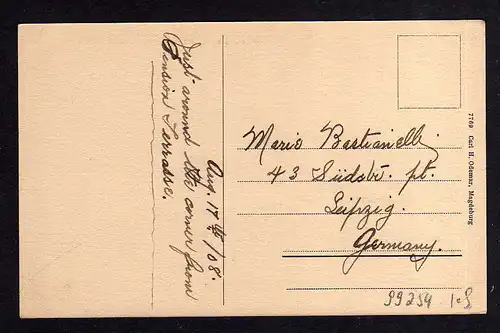 Aug. 17th/08.
Just around the corner from
Pension Terrasse.
Mario Bastianelli
43 Südstr. pt.
Leipzig.
Germany.
7769 Carl H. Odemar, Magdeburg
99254